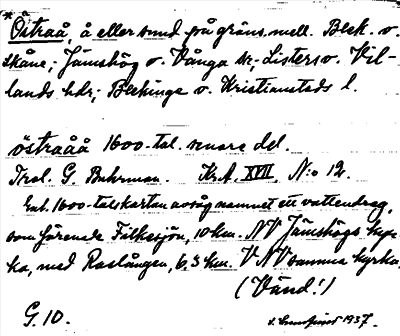 * Östraå, å eller sund på gräns mell. Blek. o.
Skåne; Jämshög o. Vånga skr, Listers o. Vil-
lands hdr; Blekinge o. Kristianstads l.
östraåå 1600-tal. senare del.
Trol. G. Buhrman. Kr.A. XVII, N:o 12.
Enl. 1600-talskartan avsåg namnet ett vattendrag,
som förenade Filkesjön, 10 km. NV Jämshögs kyr-
ka, med Raslången, 6,3 km. VNV samma kyrka.
(Vänd!)
G. 10. 1937.